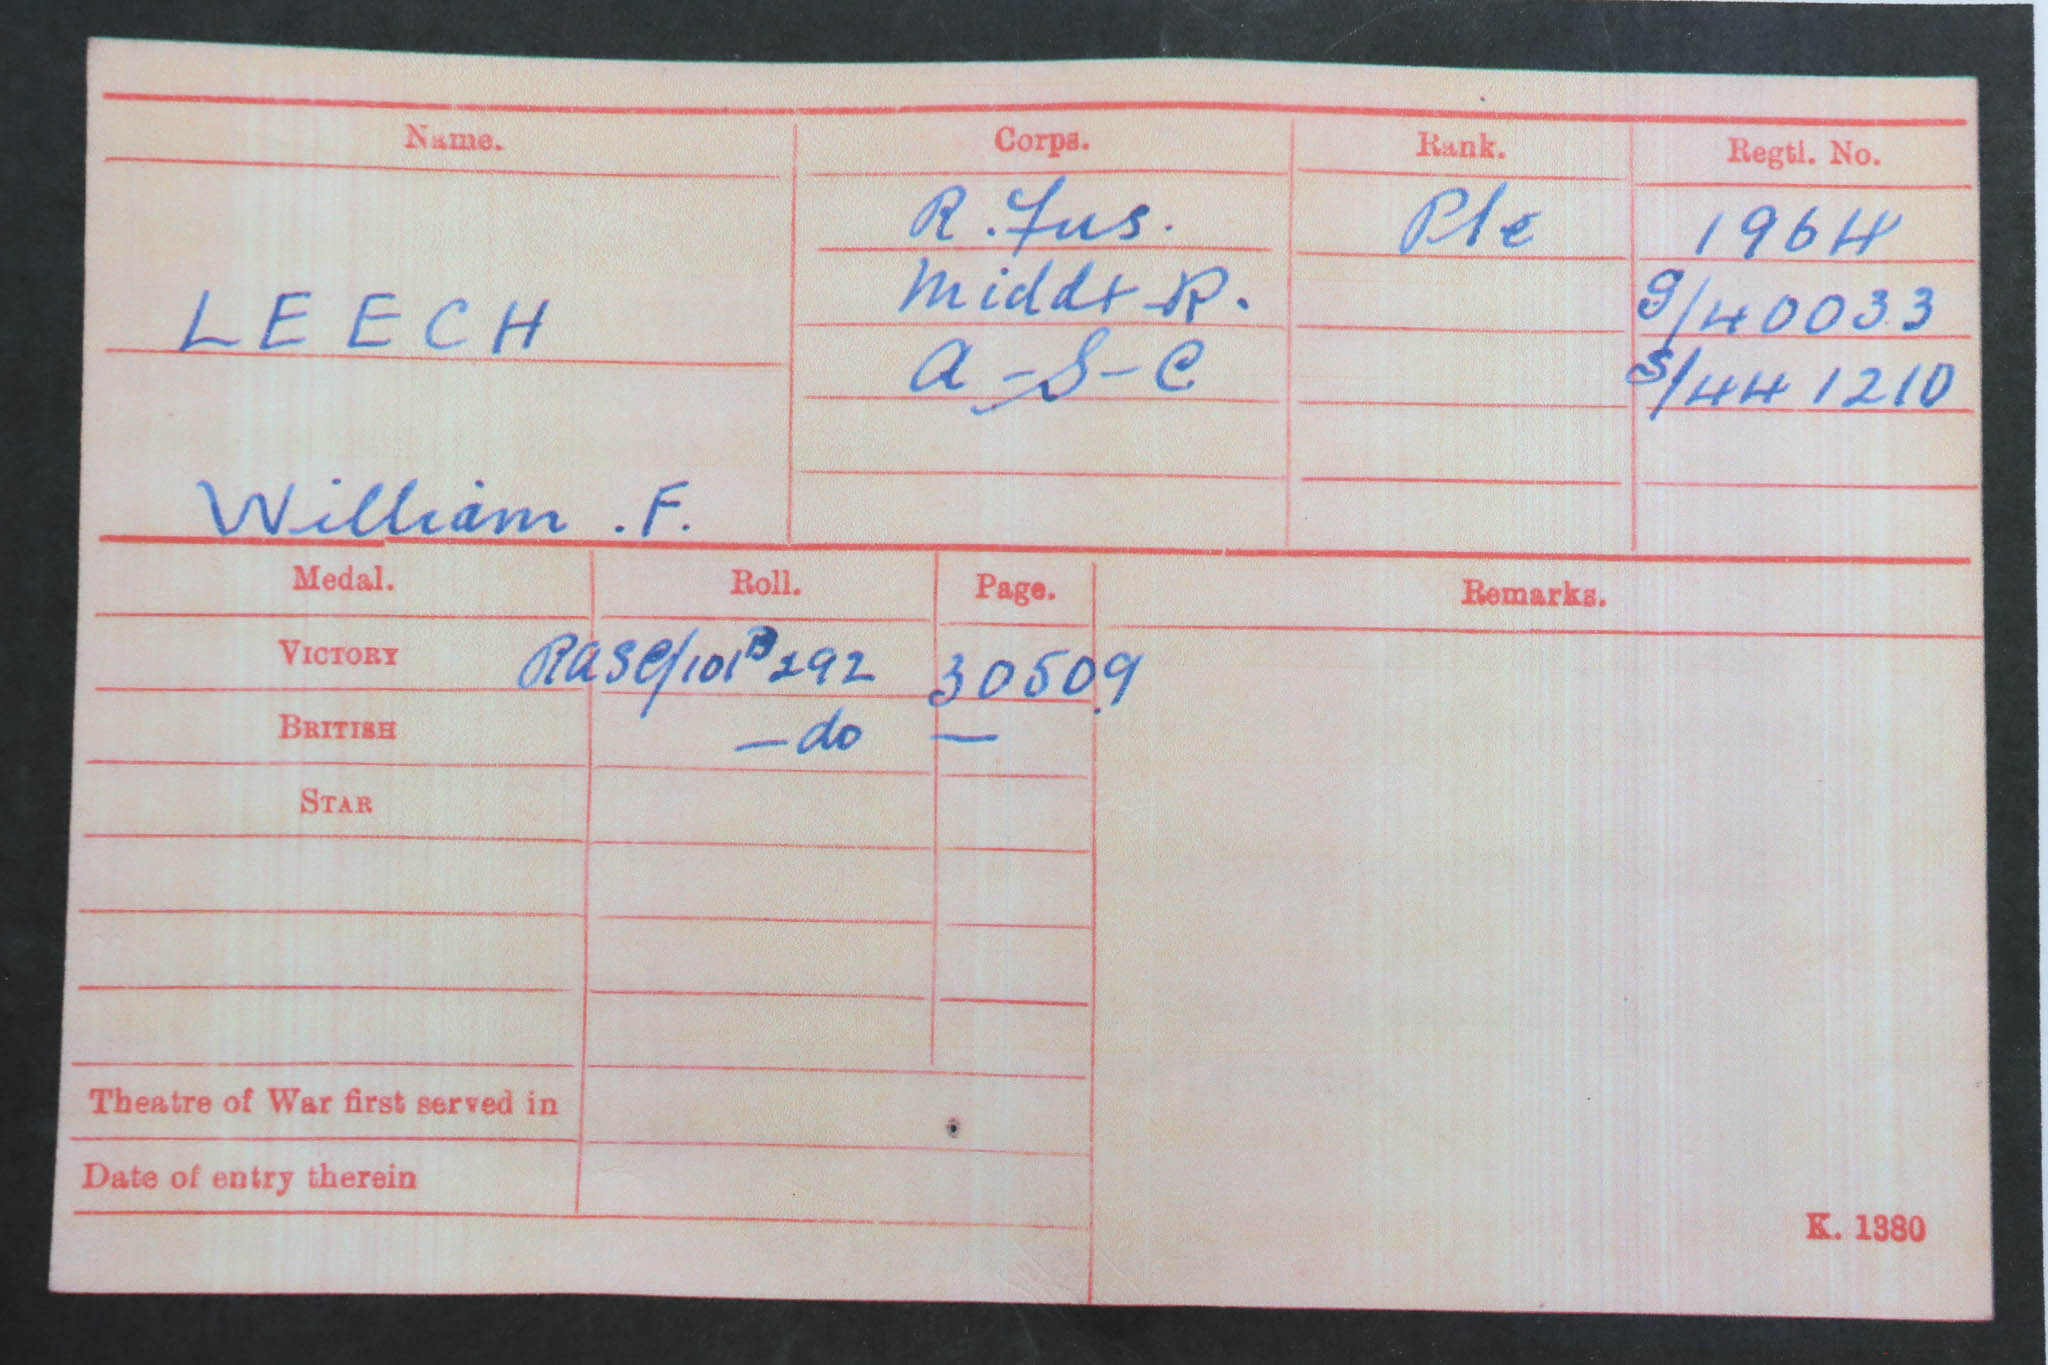 Name. Corps. Rank. Regtl. No.
R. Fus. Pte 1964
Middx R. G/40033
LEECH
A-S-C S/441210
William . F.
Medal. Roll. Page. Remarks.
VICTORY RASC/101B292 30509
BRITISH — do —
STAR
Theatre of War first served in
Date of entry therein
K. 1380